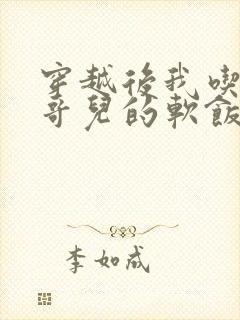 穿越後我喫
哥兒的軟飯
李如成